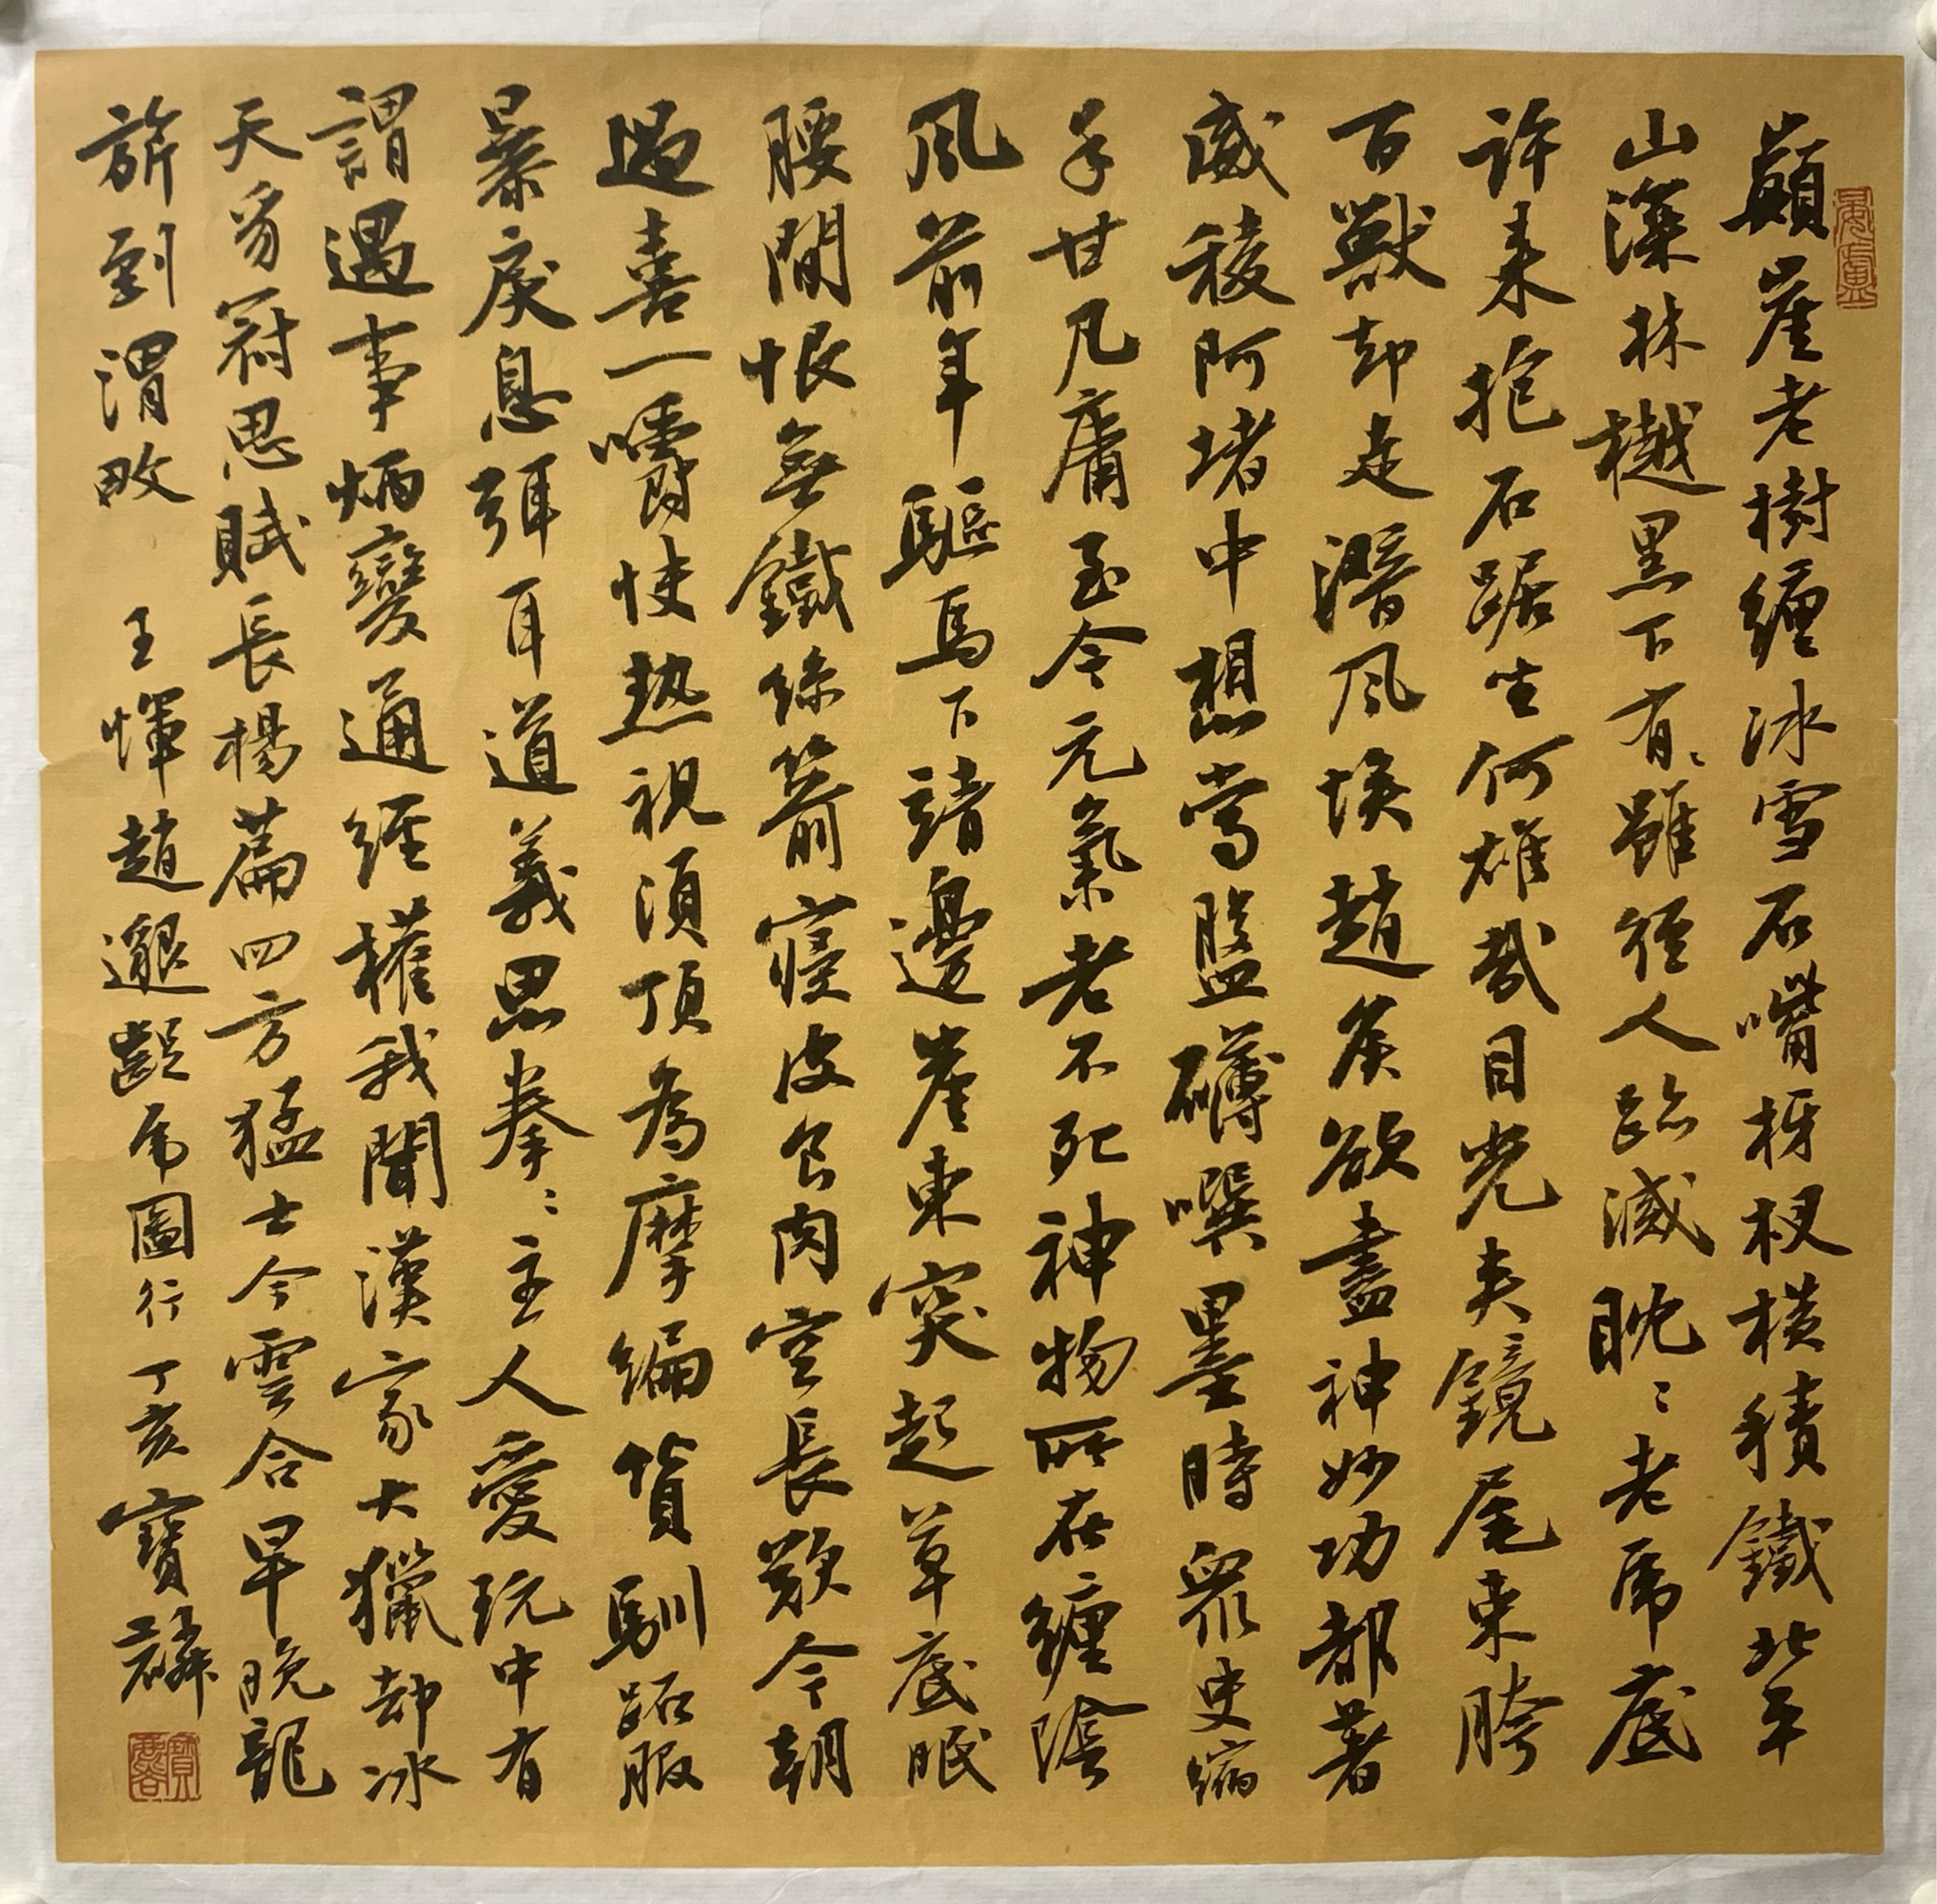 顛崖老樹纏冰雪石嘴枒杈橫積鐵北平
山深林樾黑下有〻雖徑人跡滅眈〻老虎底
許來抱石踞坐何雄哉目光夾鏡尾束胯
百獸却走潛風埃趙侯欲盡神妙功都著
威稜阿堵中想當盤礴噀墨時衆史縮
手甘凡庸至今元氣老不死神物所在纏陰
風前年驅馬下諸邊崖東突起草底眠
腰間恨無鐵絲箭寢皮食肉空長歎今朝
過喜一嚼快熱視須頂為摩編貨馴跖服
暴戾息弭耳道義思拳〻主人愛玩中有
謂遇事炳變通經權我聞漢家大獵却冰
天豸冠思賦長楊篇四方猛士今雲合早晚龍
旂到渭畋 王惲趙邈齪虎圖行丁亥寶麟